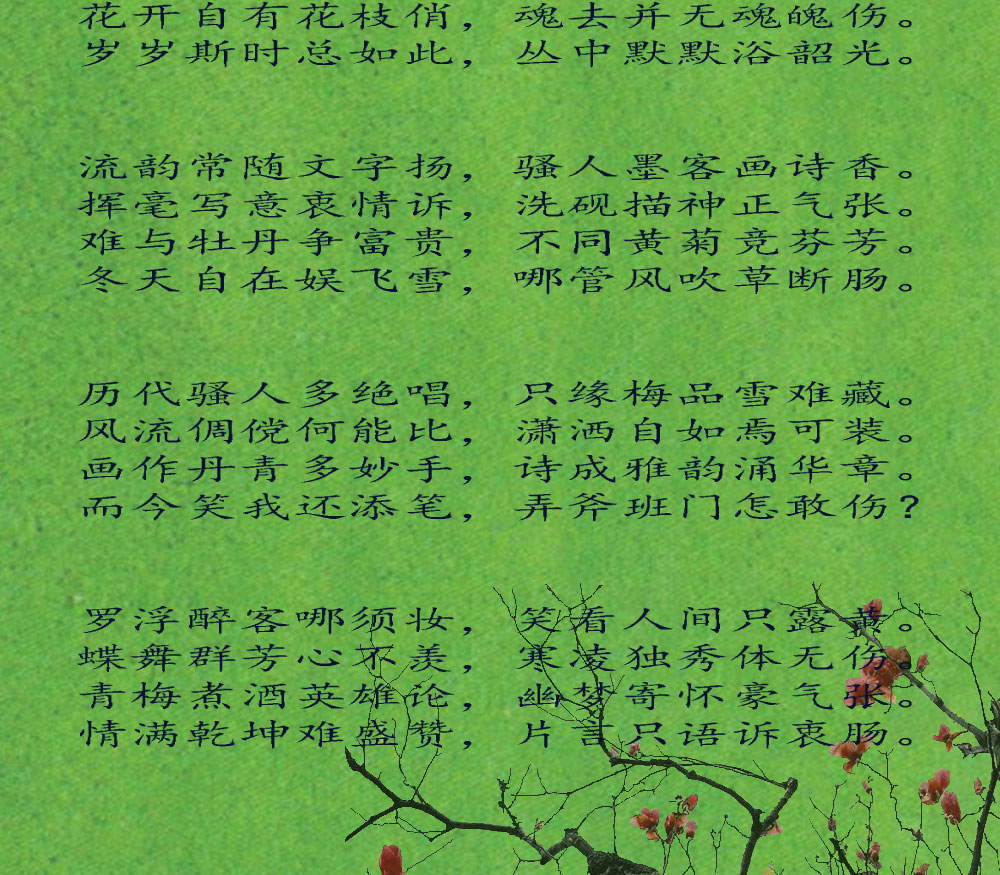 花开自有花枝俏，魂去并无魂魄伤。
岁岁斯时总如此，丛中默默浴韶光。
流韵常随文字扬，骚人墨客画诗香。
挥毫写意衷情诉，洗砚描神正气张。
难与牡丹争富贵，不同黄菊竞芬芳。
冬天自在娱飞雪，哪管风吹草断肠。
历代骚人多绝唱，只缘梅品雪难藏。
风流倜傥何能比，潇洒自如焉可装。
画作丹青多妙手，诗成雅韵涌华章。
而今笑我还添笔，弄斧班门怎敢伤？
罗浮醉客哪须妆，笑看人间只露黄。
蝶舞群芳心不羡，寒凌独秀体无伤。
青梅煮酒英雄论，幽梦寄怀豪气张。
情满乾坤难盛赞，片言只语诉衷肠。